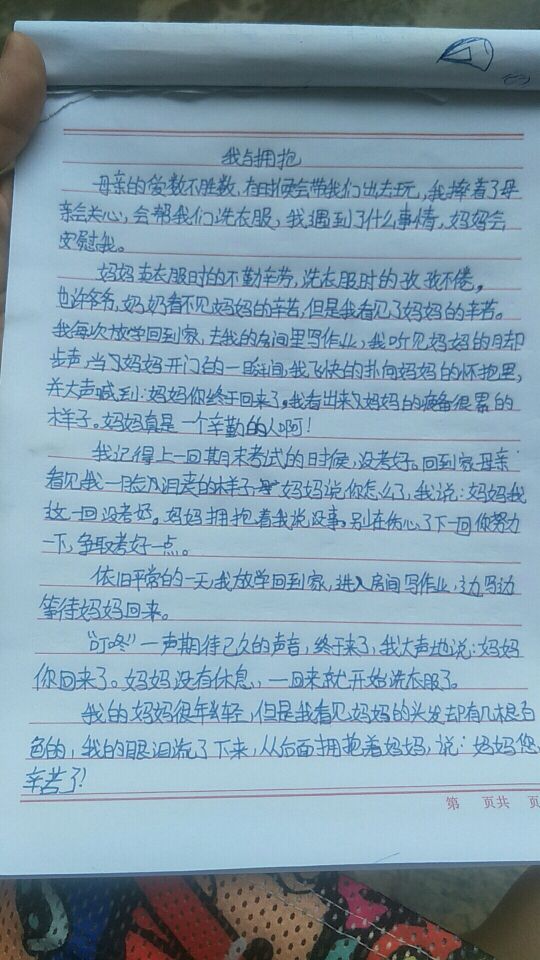 我与拥抱
母亲的爱数不胜数,有时候会带我们出去玩,我捧着了母
亲会关心,会帮我们洗衣服,我遇到了什么事情,妈妈会
安慰我。
妈妈卖衣服时的不勤辛劳,洗衣服时的孜孜不倦,
也许爷爷,奶奶看不见妈妈的辛苦,但是我看见了妈妈的辛苦。
我每次放学回到家,去我的房间里写作业,我听见妈妈的脚
步声,当妈妈开门的一瞬间,我飞快的扑向妈妈的怀抱里,
并大声喊到:妈妈你终于回来了。我看出来妈妈的疲备很累的
样子。妈妈真是一个辛勤的人啊!
我记得上一回期末考试的时候,没考好。回到家母亲
看见我一脸泪丧的样子,妈妈说你怎么了,我说:妈妈我
这一回没考好。妈妈拥抱着我说没事,别在伤心了下一回你努力
一下,争取考好一点。
依旧平常的一天,我放学回到家,进入房间写作业,边写边
等待妈妈回来。
“叮咚”一声期待已久的声音,终于来了,我大声地说:妈妈
你回来了。妈妈没有休息,一回来就开始洗衣服了。
我的妈妈很年轻,但是我看见妈妈的头发却有几根白
色的,我的眼泪流了下来,从后面拥抱着妈妈,说:妈妈您
辛苦了!
第 页共 页